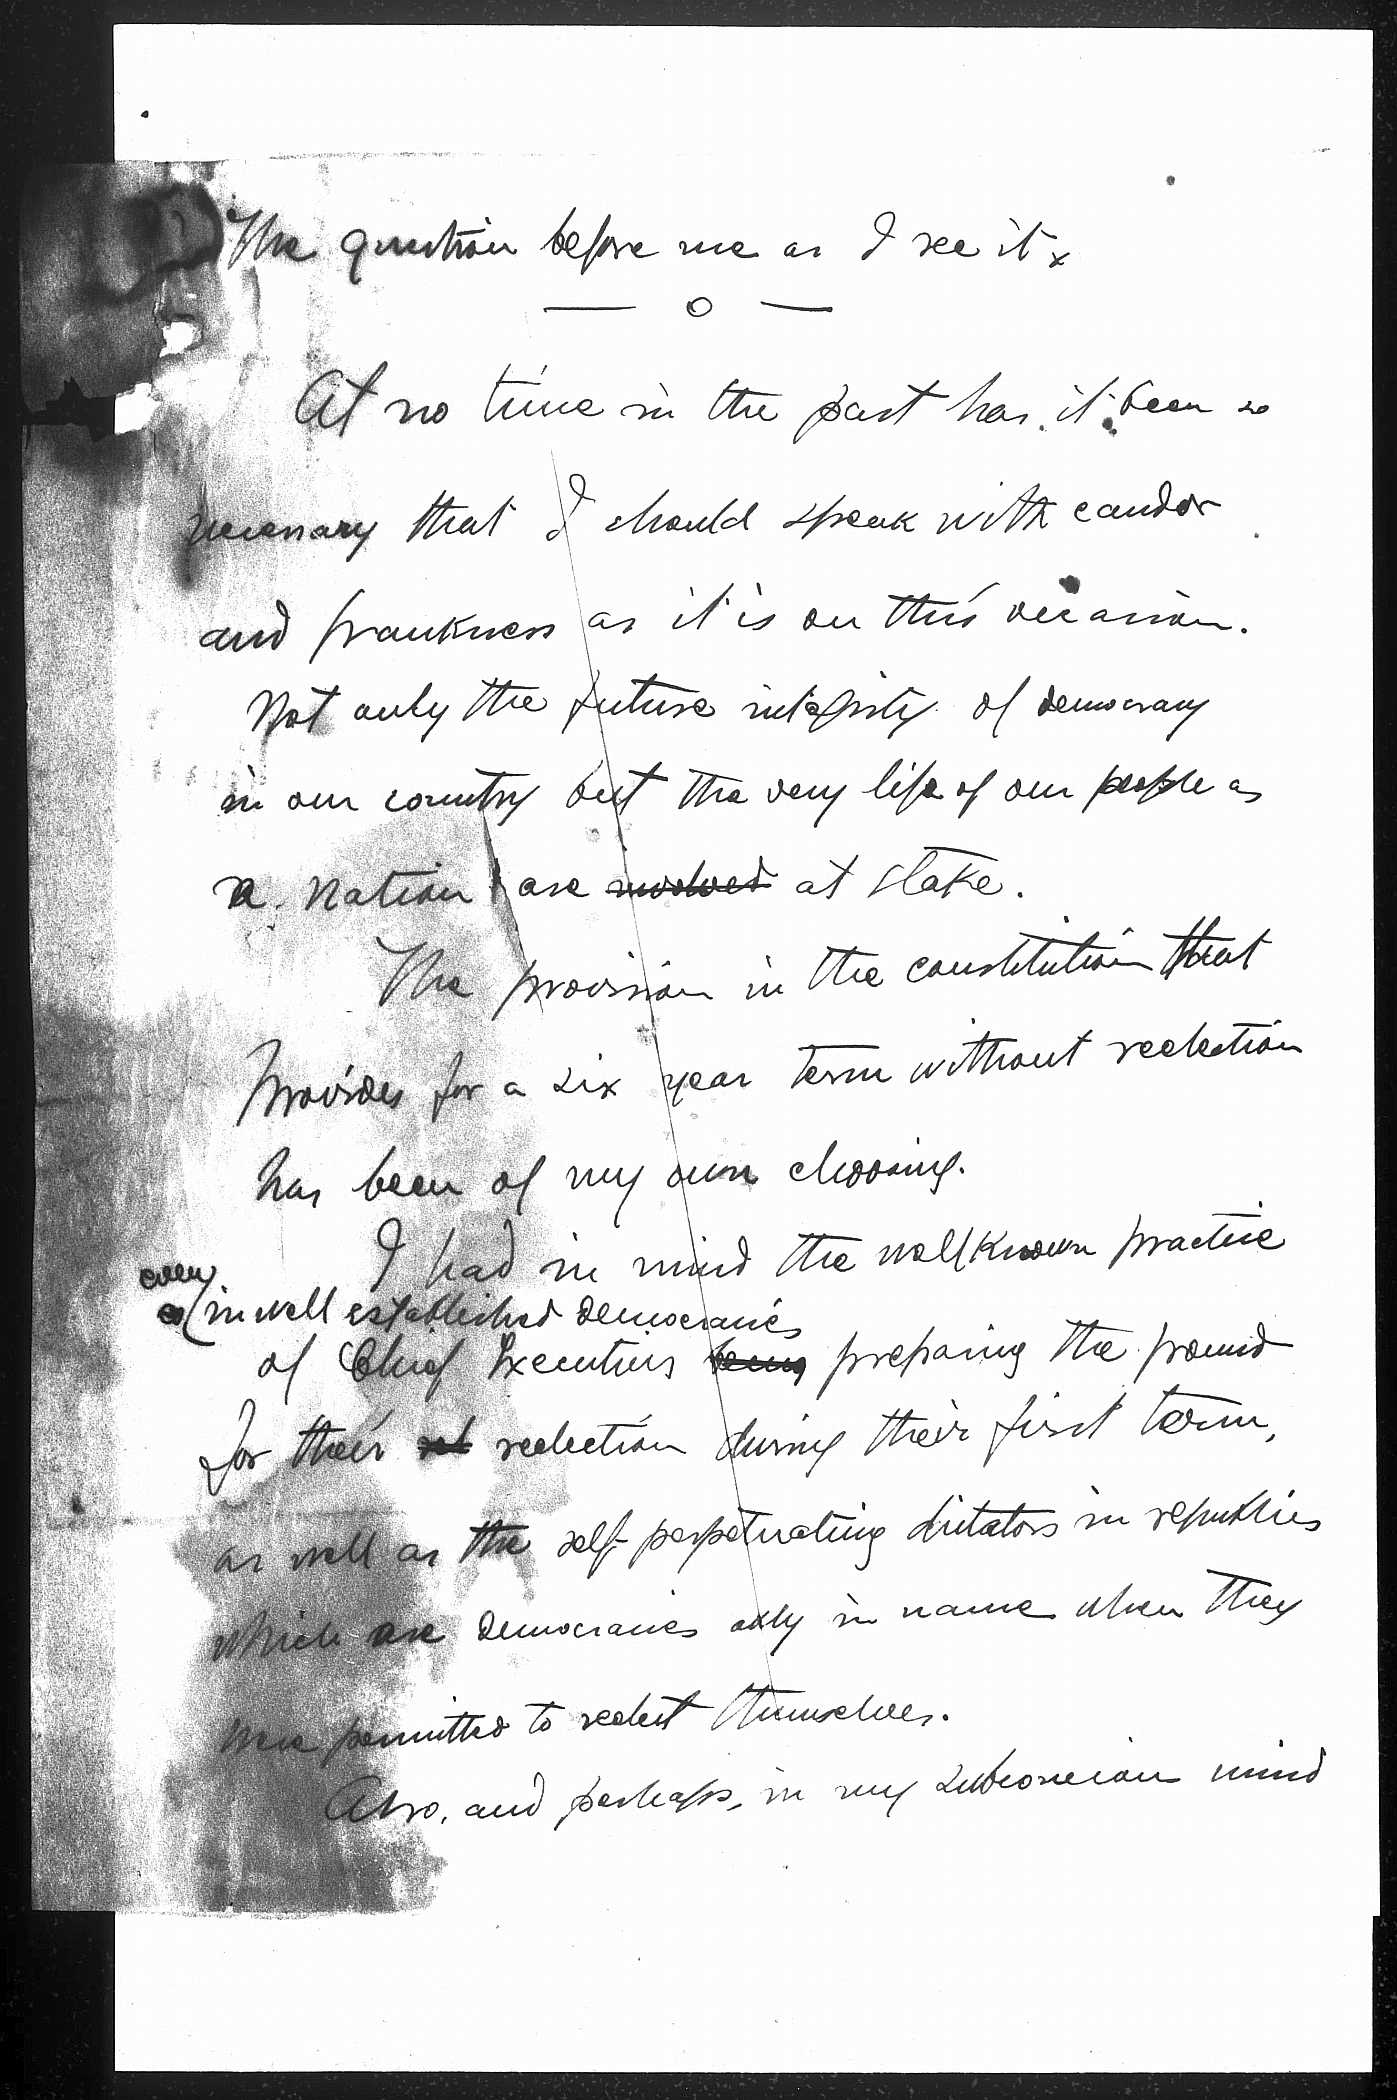 The question before me as I see it x
— o —
At no time in the past has it been so
necessary that I should speak with candor
and frankness as it is on this occasion.
Not only the future integrity of democracy
in our country but the very life of our people as
a Nation are involved at stake.
The provision in the constitution that
provides for a six year term without reelection
has been of my own choosing.
I had in mind the well known practice
even
(in well established democracies
of Chief Executives being preparing the ground
for their rel reelection during their first term,
as well as the self-perpetuating dictators in republics
which are democracies only in name when they
were permitted to reelect themselves.
Also, and perhaps, in my subconcious mind